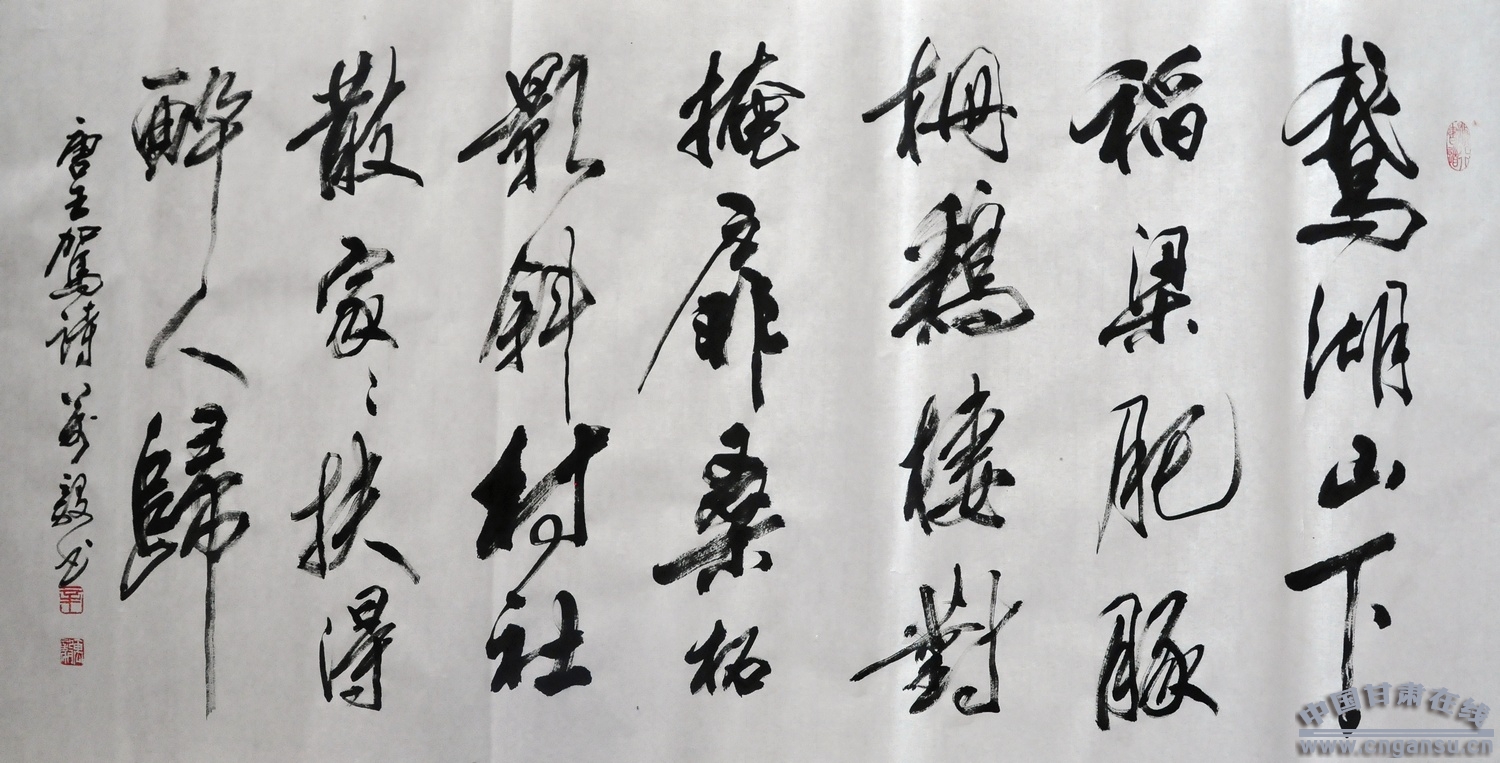 鵞湖山下
稻梁肥豚
柵鷄棲對
掩扉桑柘
影斜村社
散家々扶得
醉人歸
唐王駕詩 书
中国甘肃在线
www.cngansu.cn